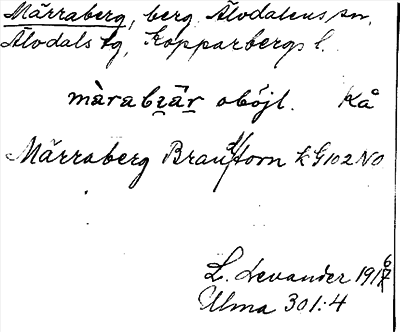 Märraberg, berg. Älvdalens sn.
Älvdals tg, Kopparbergs l.
màrabɛ̣är oböjl. Kå
Märraberg Braunstorn k G102 NO
L. Levander 1916
Ulma 301:4